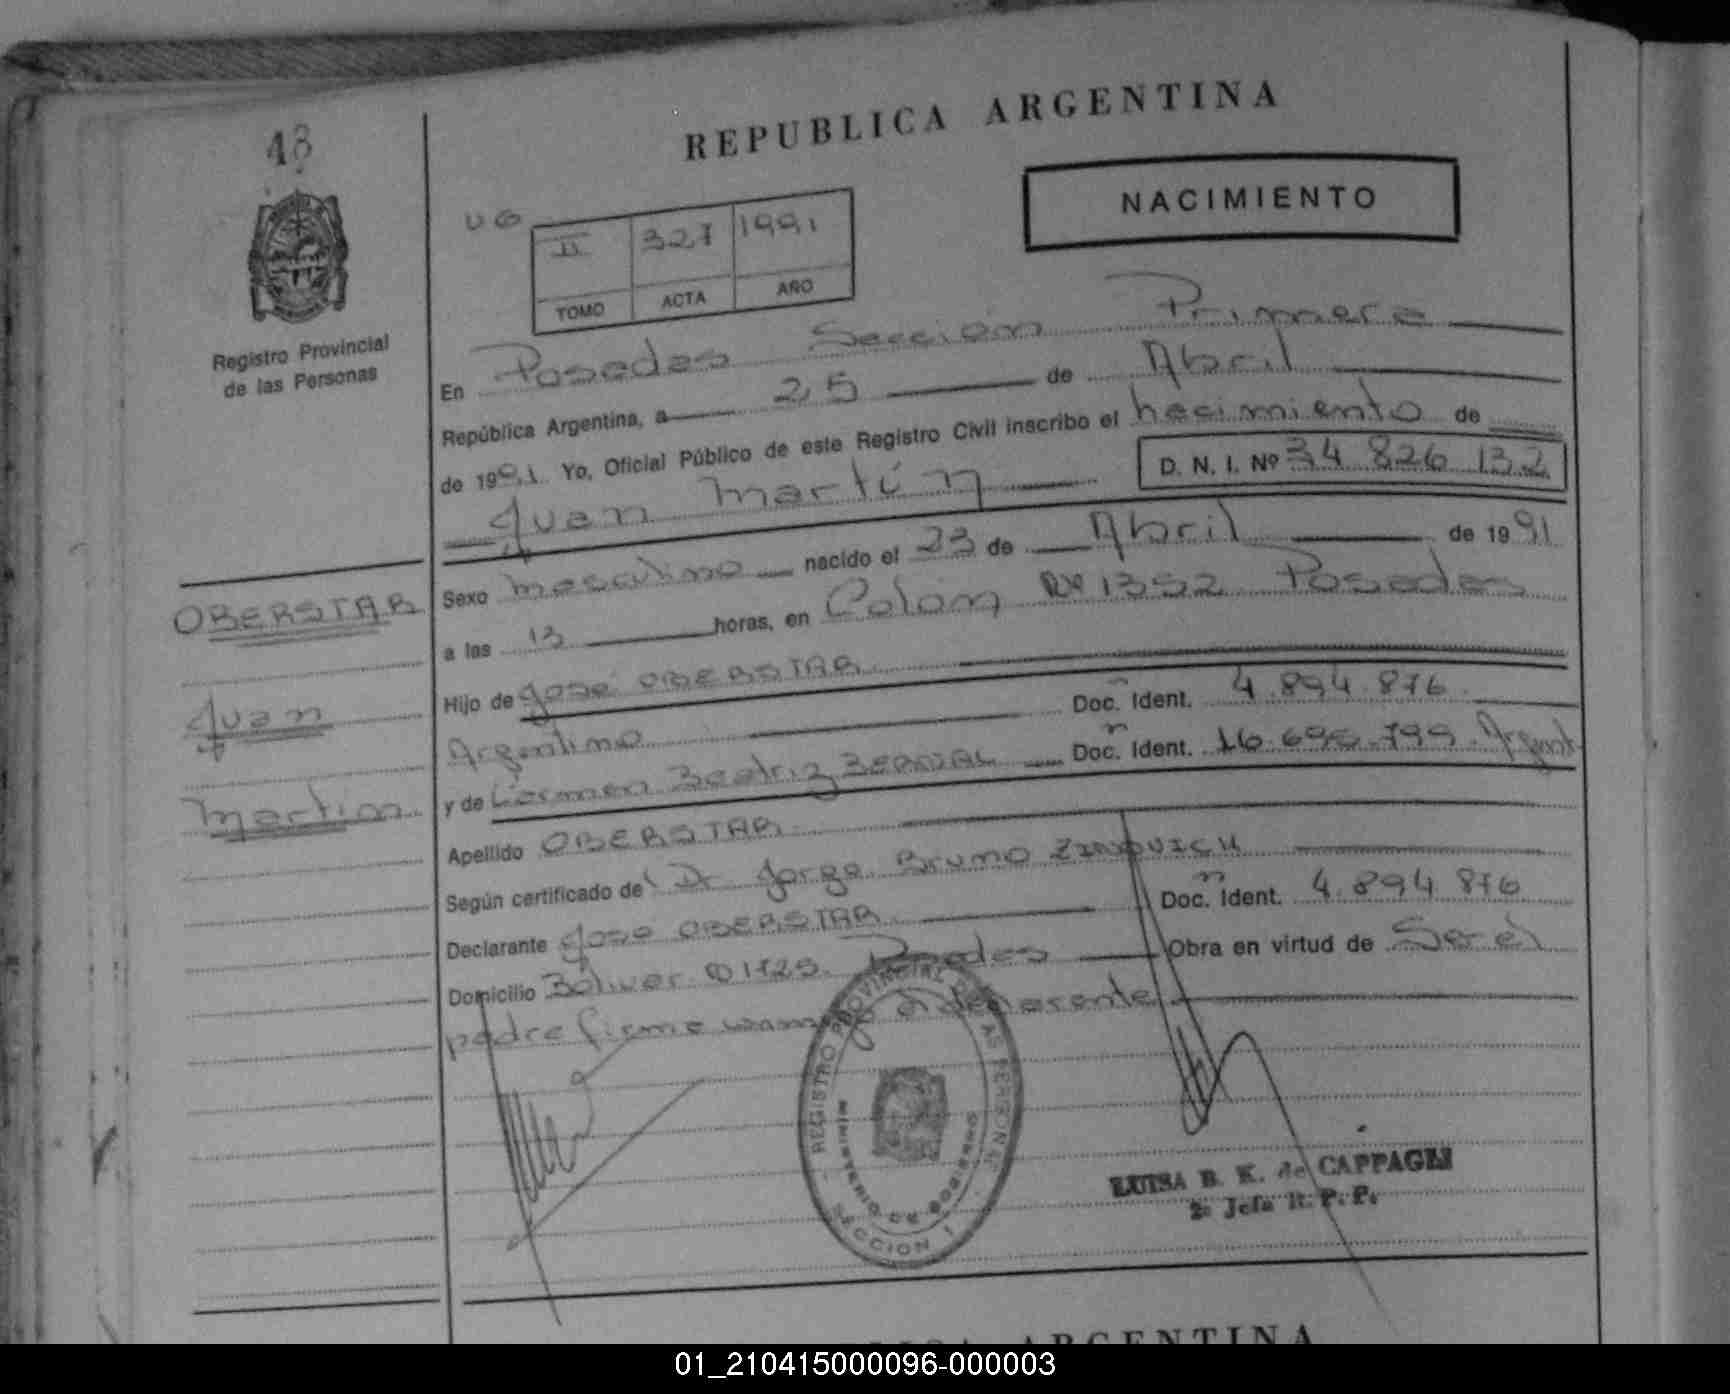 48
REPUBLICA ARGENTINA
NACIMIENTO
UG
II 327 1991
TOMO ACTA AÑO
Registro Provincial
de las Personas
En Posadas Sección Primera
República Argentina, a 25 de Abril
de 1991. Yo, Oficial Público de este Registro Civil inscribo el nacimiento de
Juan Martín D. N. I. Nº 34 826 132
Sexo masculino nacido el 23 de Abril de 1991
a las 13 horas, en Colón Nº 1352 Posadas
Hijo de José OBERSTAR
Argentino Doc. Ident. 4.894.876
y de Carmen Beatriz BERNAL Doc. Ident. 16.696.799. Argent
Apellido OBERSTAR
Según certificado de Dr Jorge Bruno ZINOVICH
Declarante José OBERSTAR Doc. Ident. 4.894.876
Domicilio Bolivar 1725. Posadas Obra en virtud de Ser el
padre firma
OBERSTAR
Juan
Martin
REGISTRO PROVINCIAL DE LAS PERSONAS
MINISTERIO DE GOBIERNO
SECCION 1
LUISA B. K. de CAPPAGLI
2ª Jefa R. P. P.
REPUBLICA ARGENTINA
01_210415000096-000003